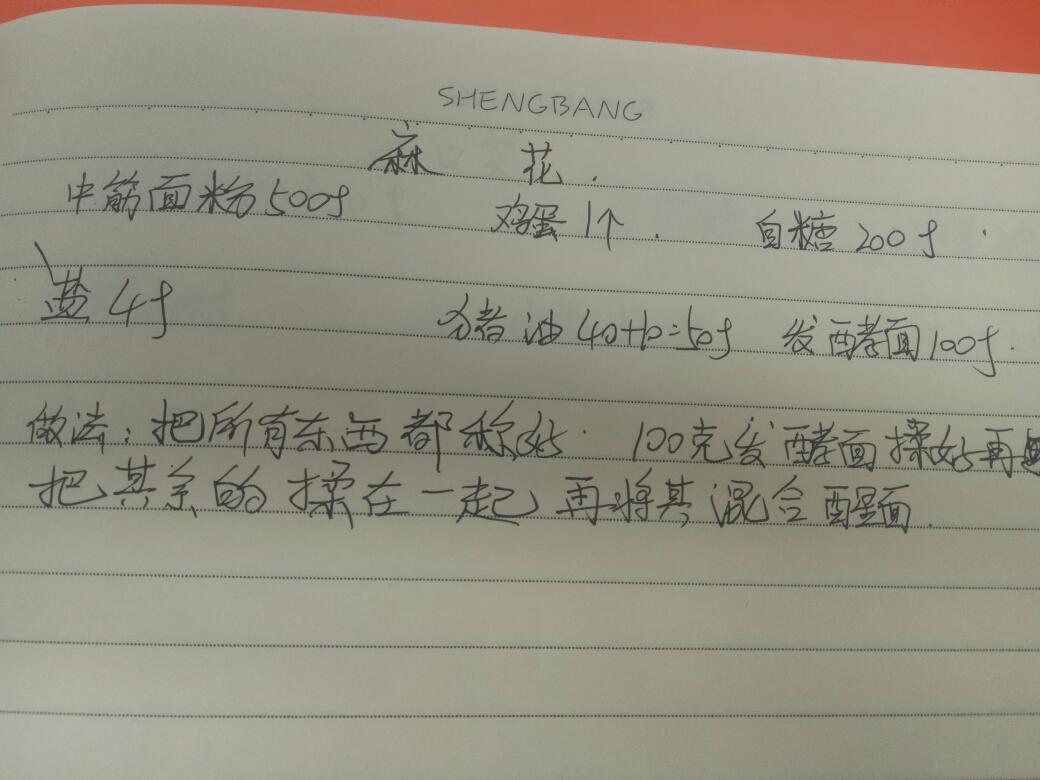 SHENGBANG
麻 花.
中筋面粉500g 鸡蛋1个. 白糖200g.
盐4g 猪油40+10=50g 发酵面100g.
做法:把所有东西都称好. 100克发酵面揉好再
把其余的揉在一起再将其混合醒面.